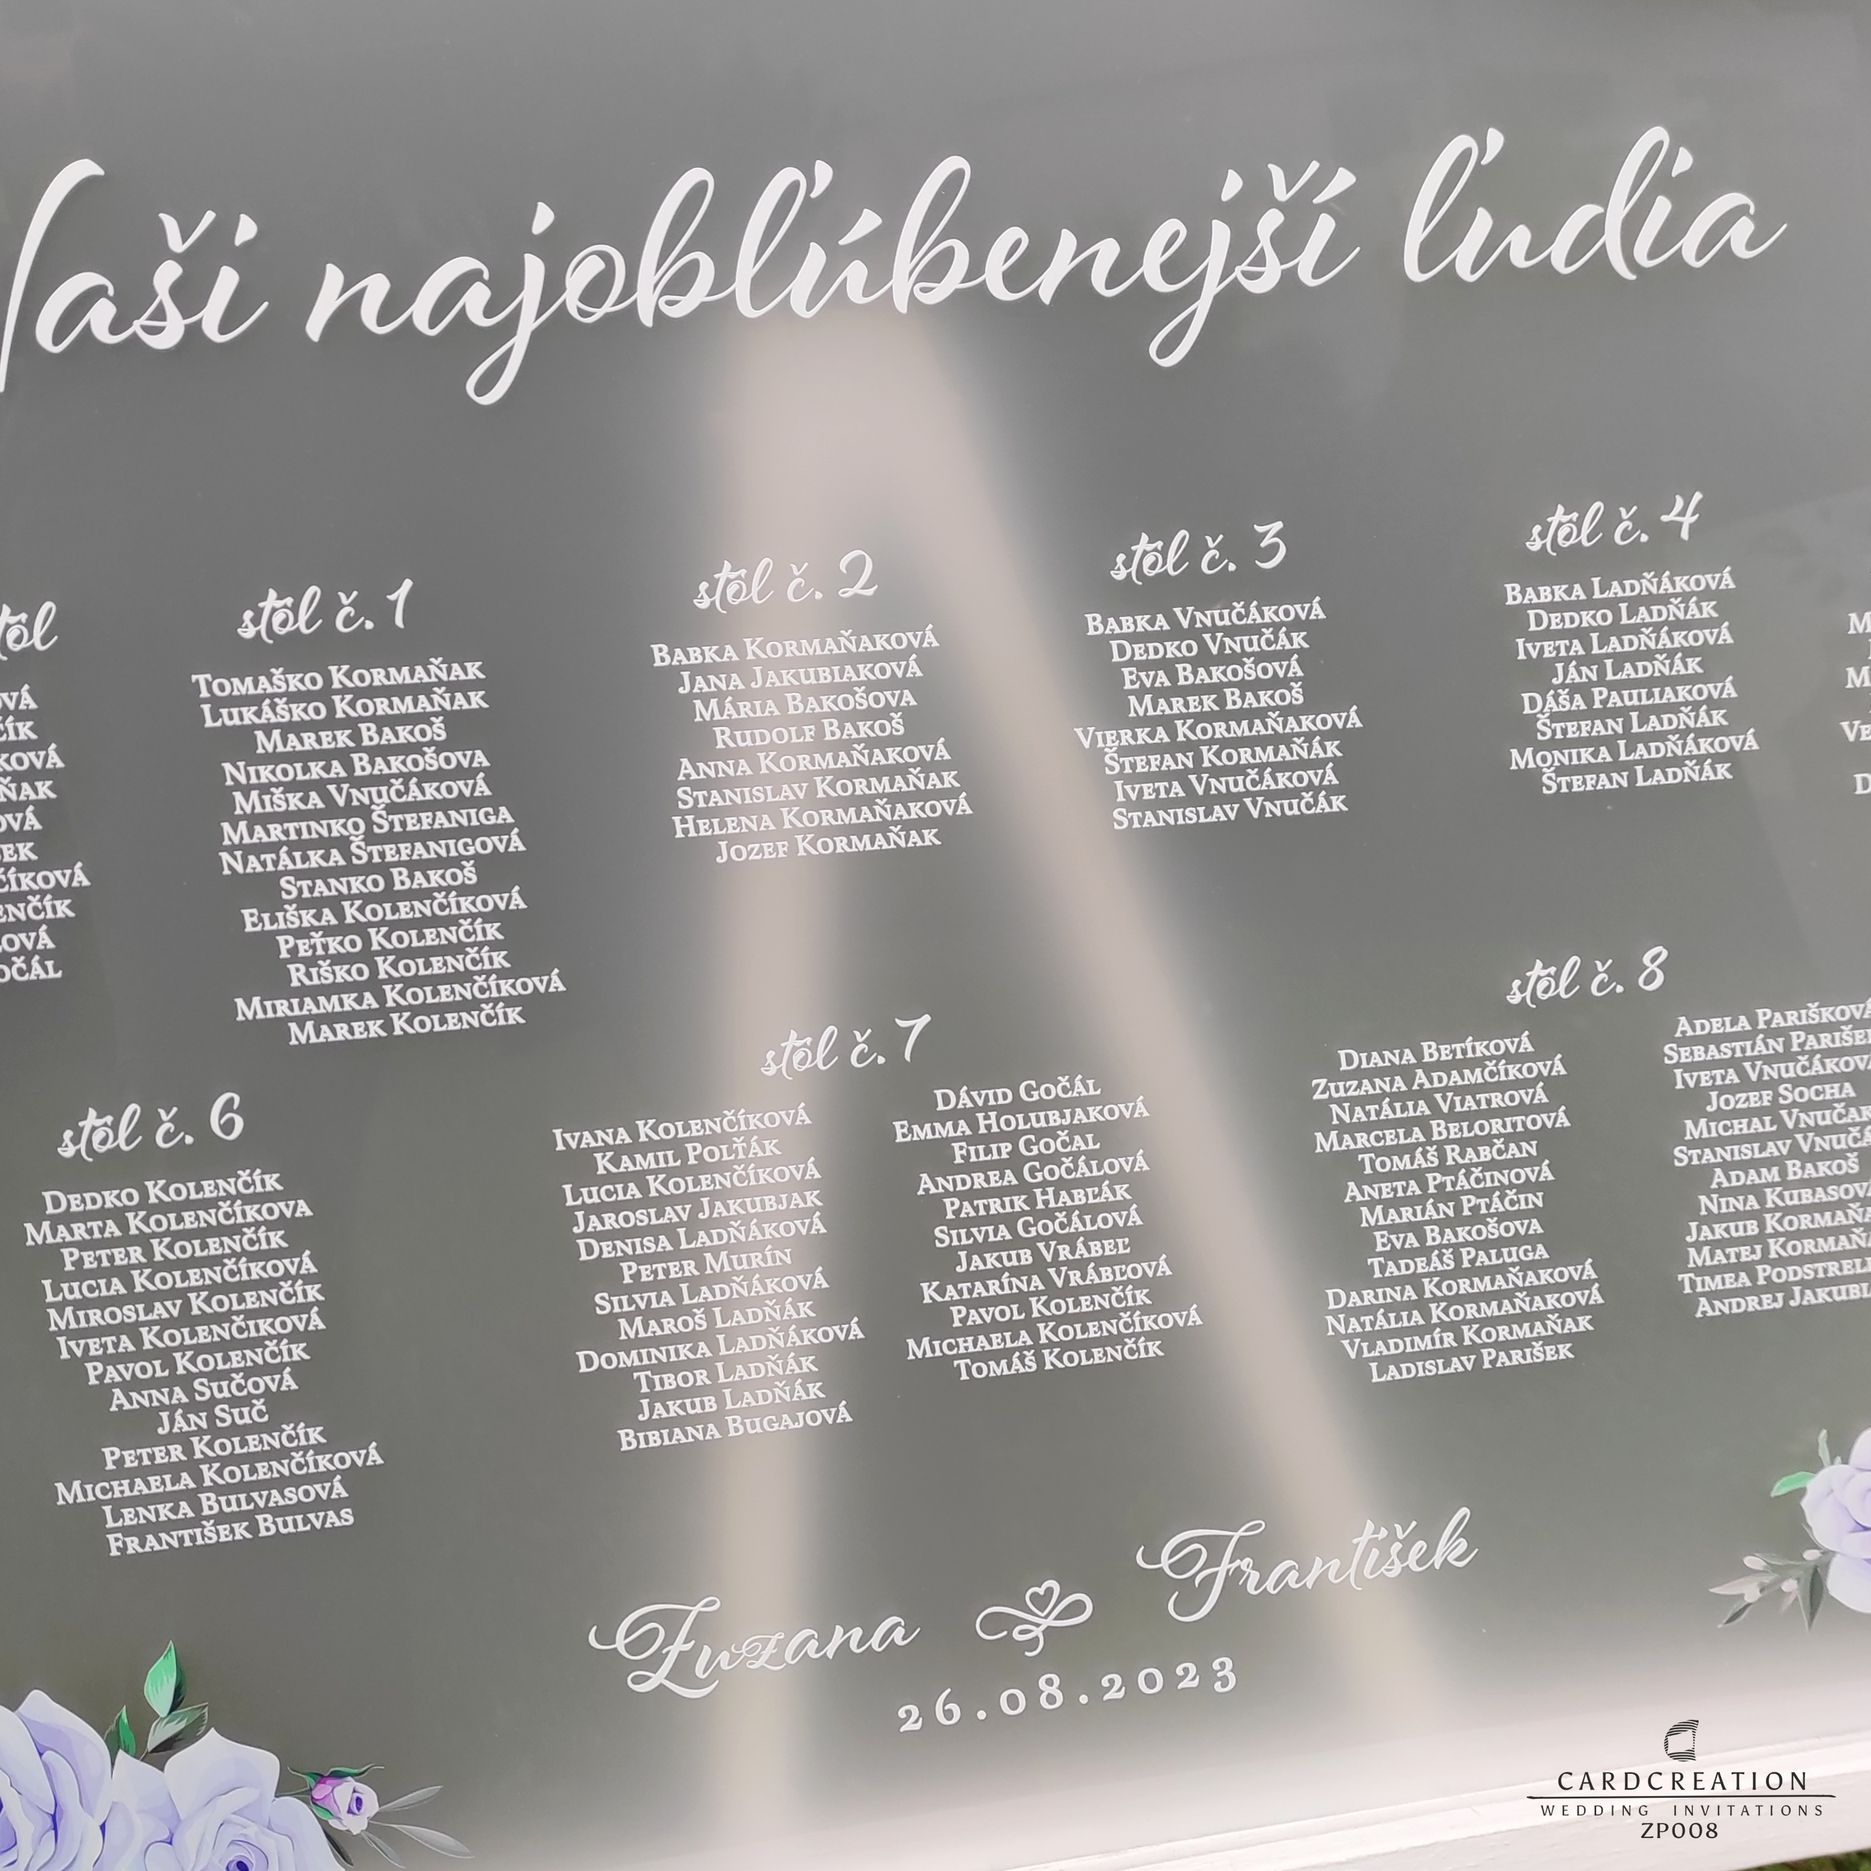 Naši najobľúbenejší ľudia
stôl č. 1
Tomaško Kormaňak
Lukáško Kormaňak
Marek Bakoš
Nikolka Bakošova
Miška Vnučáková
Martinko Štefaniga
Natálka Štefanigová
Stanko Bakoš
Eliška Kolenčíková
Peťko Kolenčík
Riško Kolenčík
Miriamka Kolenčíková
Marek Kolenčík
stôl č. 2
Babka Kormaňaková
Jana Jakubiaková
Mária Bakošova
Rudolf Bakoš
Anna Kormaňaková
Stanislav Kormaňak
Helena Kormaňaková
Jozef Kormaňak
stôl č. 3
Babka Vnučáková
Dedko Vnučák
Eva Bakošová
Marek Bakoš
Vierka Kormaňaková
Štefan Kormaňák
Iveta Vnučáková
Stanislav Vnučák
stôl č. 4
Babka Ladňáková
Dedko Ladňák
Iveta Ladňáková
Ján Ladňák
Dáša Pauliaková
Štefan Ladňák
Monika Ladňáková
Štefan Ladňák
stôl č. 6
Dedko Kolenčík
Marta Kolenčíkova
Peter Kolenčík
Lucia Kolenčíková
Miroslav Kolenčík
Iveta Kolenčiková
Pavol Kolenčík
Anna Sučová
Ján Suč
Peter Kolenčík
Michaela Kolenčíková
Lenka Bulvasová
František Bulvas
stôl č. 7
Ivana Kolenčíková
Kamil Polťák
Lucia Kolenčíková
Jaroslav Jakubjak
Denisa Ladňáková
Peter Murín
Silvia Ladňáková
Maroš Ladňák
Dominika Ladňáková
Tibor Ladňák
Jakub Ladňák
Bibiana Bugajová
Dávid Gočál
Emma Holubjaková
Filip Gočal
Andrea Gočálová
Patrik Habľák
Silvia Gočálová
Jakub Vrábeľ
Katarína Vrábľová
Pavol Kolenčík
Michaela Kolenčíková
Tomáš Kolenčík
stôl č. 8
Diana Betíková
Zuzana Adamčíková
Natália Viatrová
Marcela Beloritová
Tomáš Rabčan
Aneta Ptáčinová
Marián Ptáčin
Eva Bakošova
Tadeáš Paluga
Darina Kormaňaková
Natália Kormaňaková
Vladimír Kormaňak
Ladislav Parišek
Adela Parišková
Sebastián Parišek
Iveta Vnučáková
Jozef Socha
Michal Vnučak
Stanislav Vnučá
Adam Bakoš
Nina Kubasová
Jakub Kormaňa
Matej Kormaňa
Timea Podstrel
Andrej Jakubi
Zuzana František
26.08.2023
CARDCREATION
WEDDING INVITATIONS
ZP008